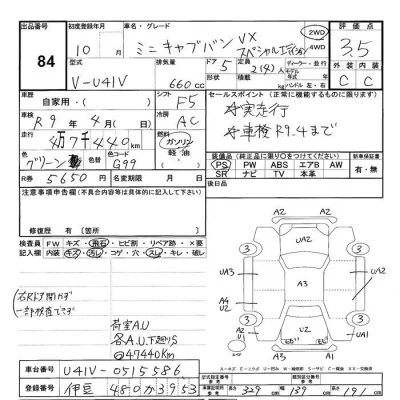 出品番号 84
初度登録年月 10年 月
車名・グレード ミニキャブバン VX スペシャルエディション
2WD 4WD
評価点 3.5
外装 C 内装 C
型式 V-U41V
排気量 660cc
ドア 5
定員 2(4)人
ディーラー・並行
ハンドル 左・右
車歴 自家用・( )
シフト F5
車検 R9年4月( )日
冷房 AC
走行 4万7千440km
燃料 ガソリン 軽油
色 グリーン
色替
色コード G99
R券 5650円
セールスポイント(正常に機能するものに限ります)
☆実走行
☆車検R9.4まで
装備品(純正品に限り○をつけてください)
PS PW ABS エアB AW
SR ナビ TV 本革
新車保証書 有・無
後日品
注意事項申告欄(不具合な点は具体的に記入して下さい)
修復歴 有( )箇所
検査員記入欄
FW キズ・飛石・ヒビ割・リペア跡・×要
内装 キズ・汚レ・コゲ・穴・スレ・キレ・破レ
右Rドア開かず
一部検査できず
荷室AU
各A.U.下廻りS
@47440Km
A2 A2
3 UA2 3
UA3 A3 UA3
A4 U2 A2
3 UA2 3
UA2 UA1
U2
車台番号 U41V-0515586
登録番号 伊豆 480か3953
長さ 329 幅 139 高さ 191